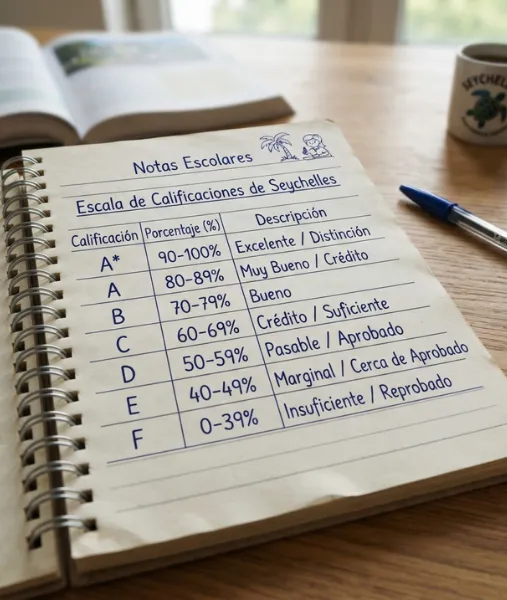 Notas Escolares
Escala de Calificaciones de Seychelles
Calificación Porcentaje (%) Descripción
A* 90-100% Excelente / Distinción
A 80-89% Muy Bueno / Crédito
B 70-79% Bueno
C 60-69% Crédito / Suficiente
D 50-59% Pasable / Aprobado
E 40-49% Marginal / Cerca de Aprobado
F 0-39% Insuficiente / Reprobado